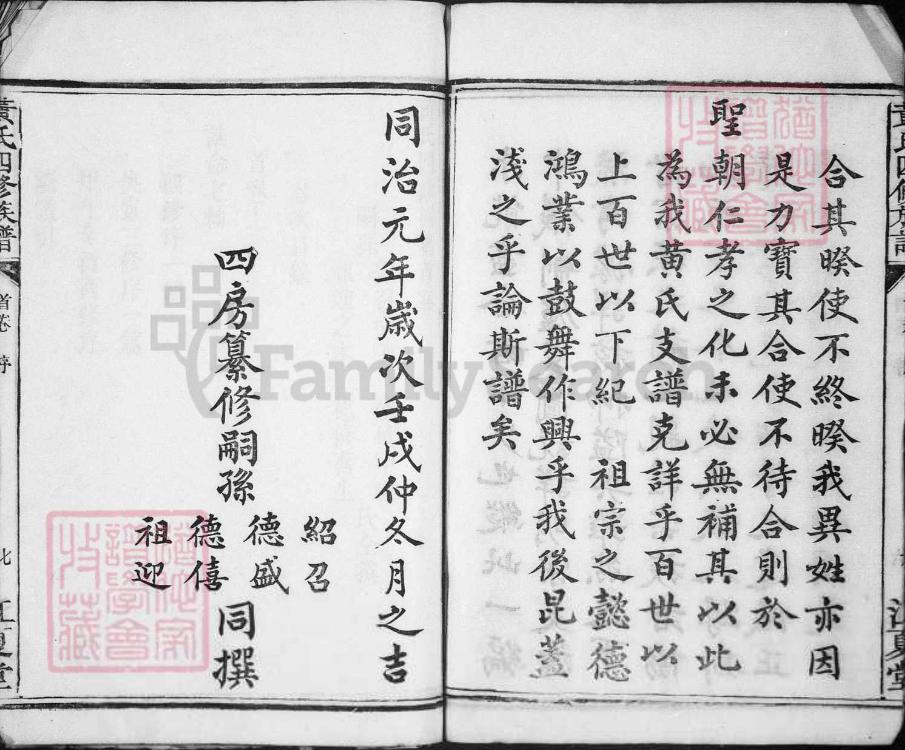 合其暌使不終暌我異姓亦因
是力寶其合使不待合則於
聖朝仁孝之化未必無補其以此
為我黃氏支譜克詳乎百世以
上百世以下紀 祖宗之懿德
鴻業以鼓舞作興乎我後昆蓋
淺之乎論斯譜矣
同治元年歲次壬戌仲冬月之吉
四房纂修嗣孫
紹召
德盛
德僖
祖迎
同撰
黃氏四修族譜
首卷 序
江夏堂
黃氏四修族譜
江夏堂
FamilySearch